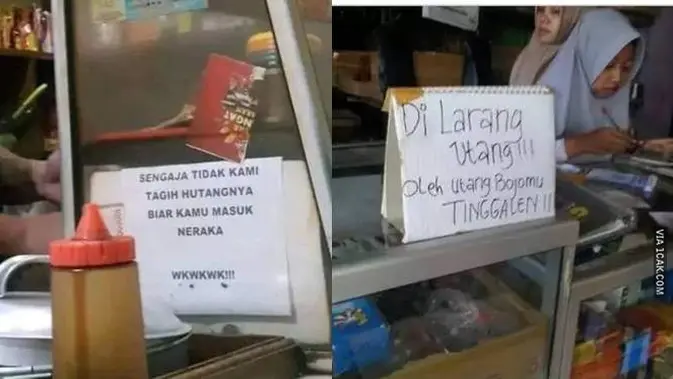 SENGAJA TIDAK KAMI
TAGIH HUTANGNYA
BIAR KAMU MASUK
NERAKA
WKWKWK!!!
Di Larang
Utang!!!
Oleh Utang Bojomu
TINGGALEN!!
VIA 1CAK.COM